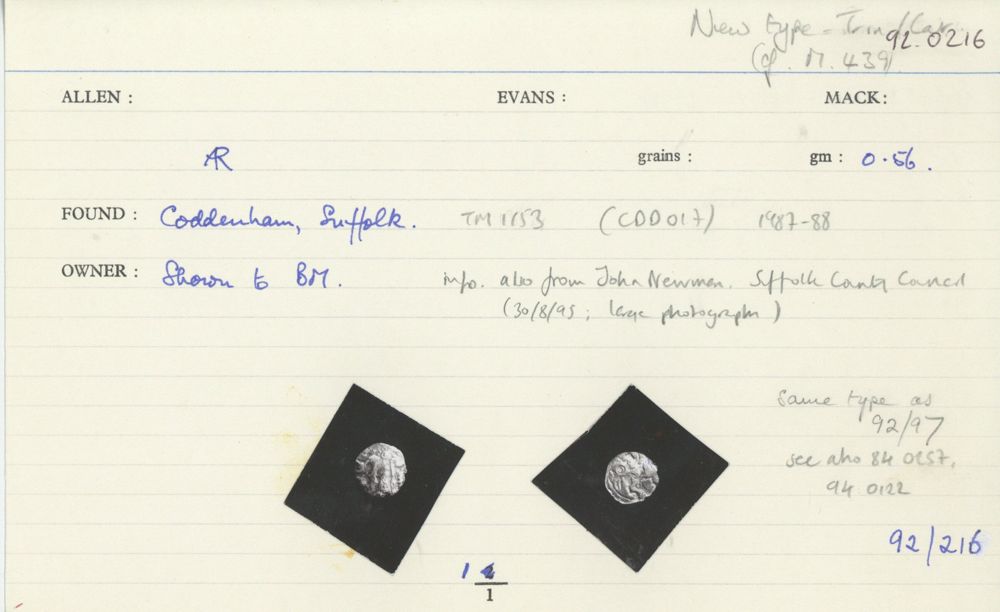 New type - Trin/Cat
92.0216
(cf. M. 439)
ALLEN : EVANS : MACK:
AR grains : gm : 0.56.
FOUND : Coddenham, Suffolk. TM 1153 (CDD 017) 1987-88
OWNER : Shown to BM. info. also from John Newman. Suffolk County Council
(30/8/95 ; large photographs)
Same type as
92/97
see also 84 0257,
94 0122
92/216
1
1